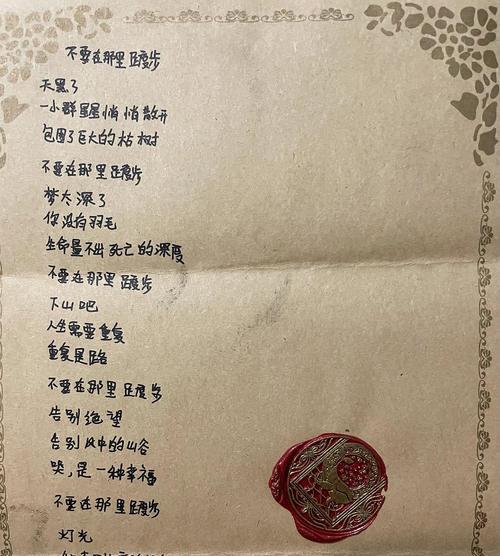 不要在那里踱步
天黑了
一小群星星悄悄散开
包围了巨大的枯树
不要在那里踱步
梦太深了
你没有羽毛
生命量不出死亡的深度
不要在那里踱步
下山吧
人生需要重复
重复是路
不要在那里踱步
告别绝望
告别风中的山谷
哭,是一种幸福
不要在那里踱步
灯光